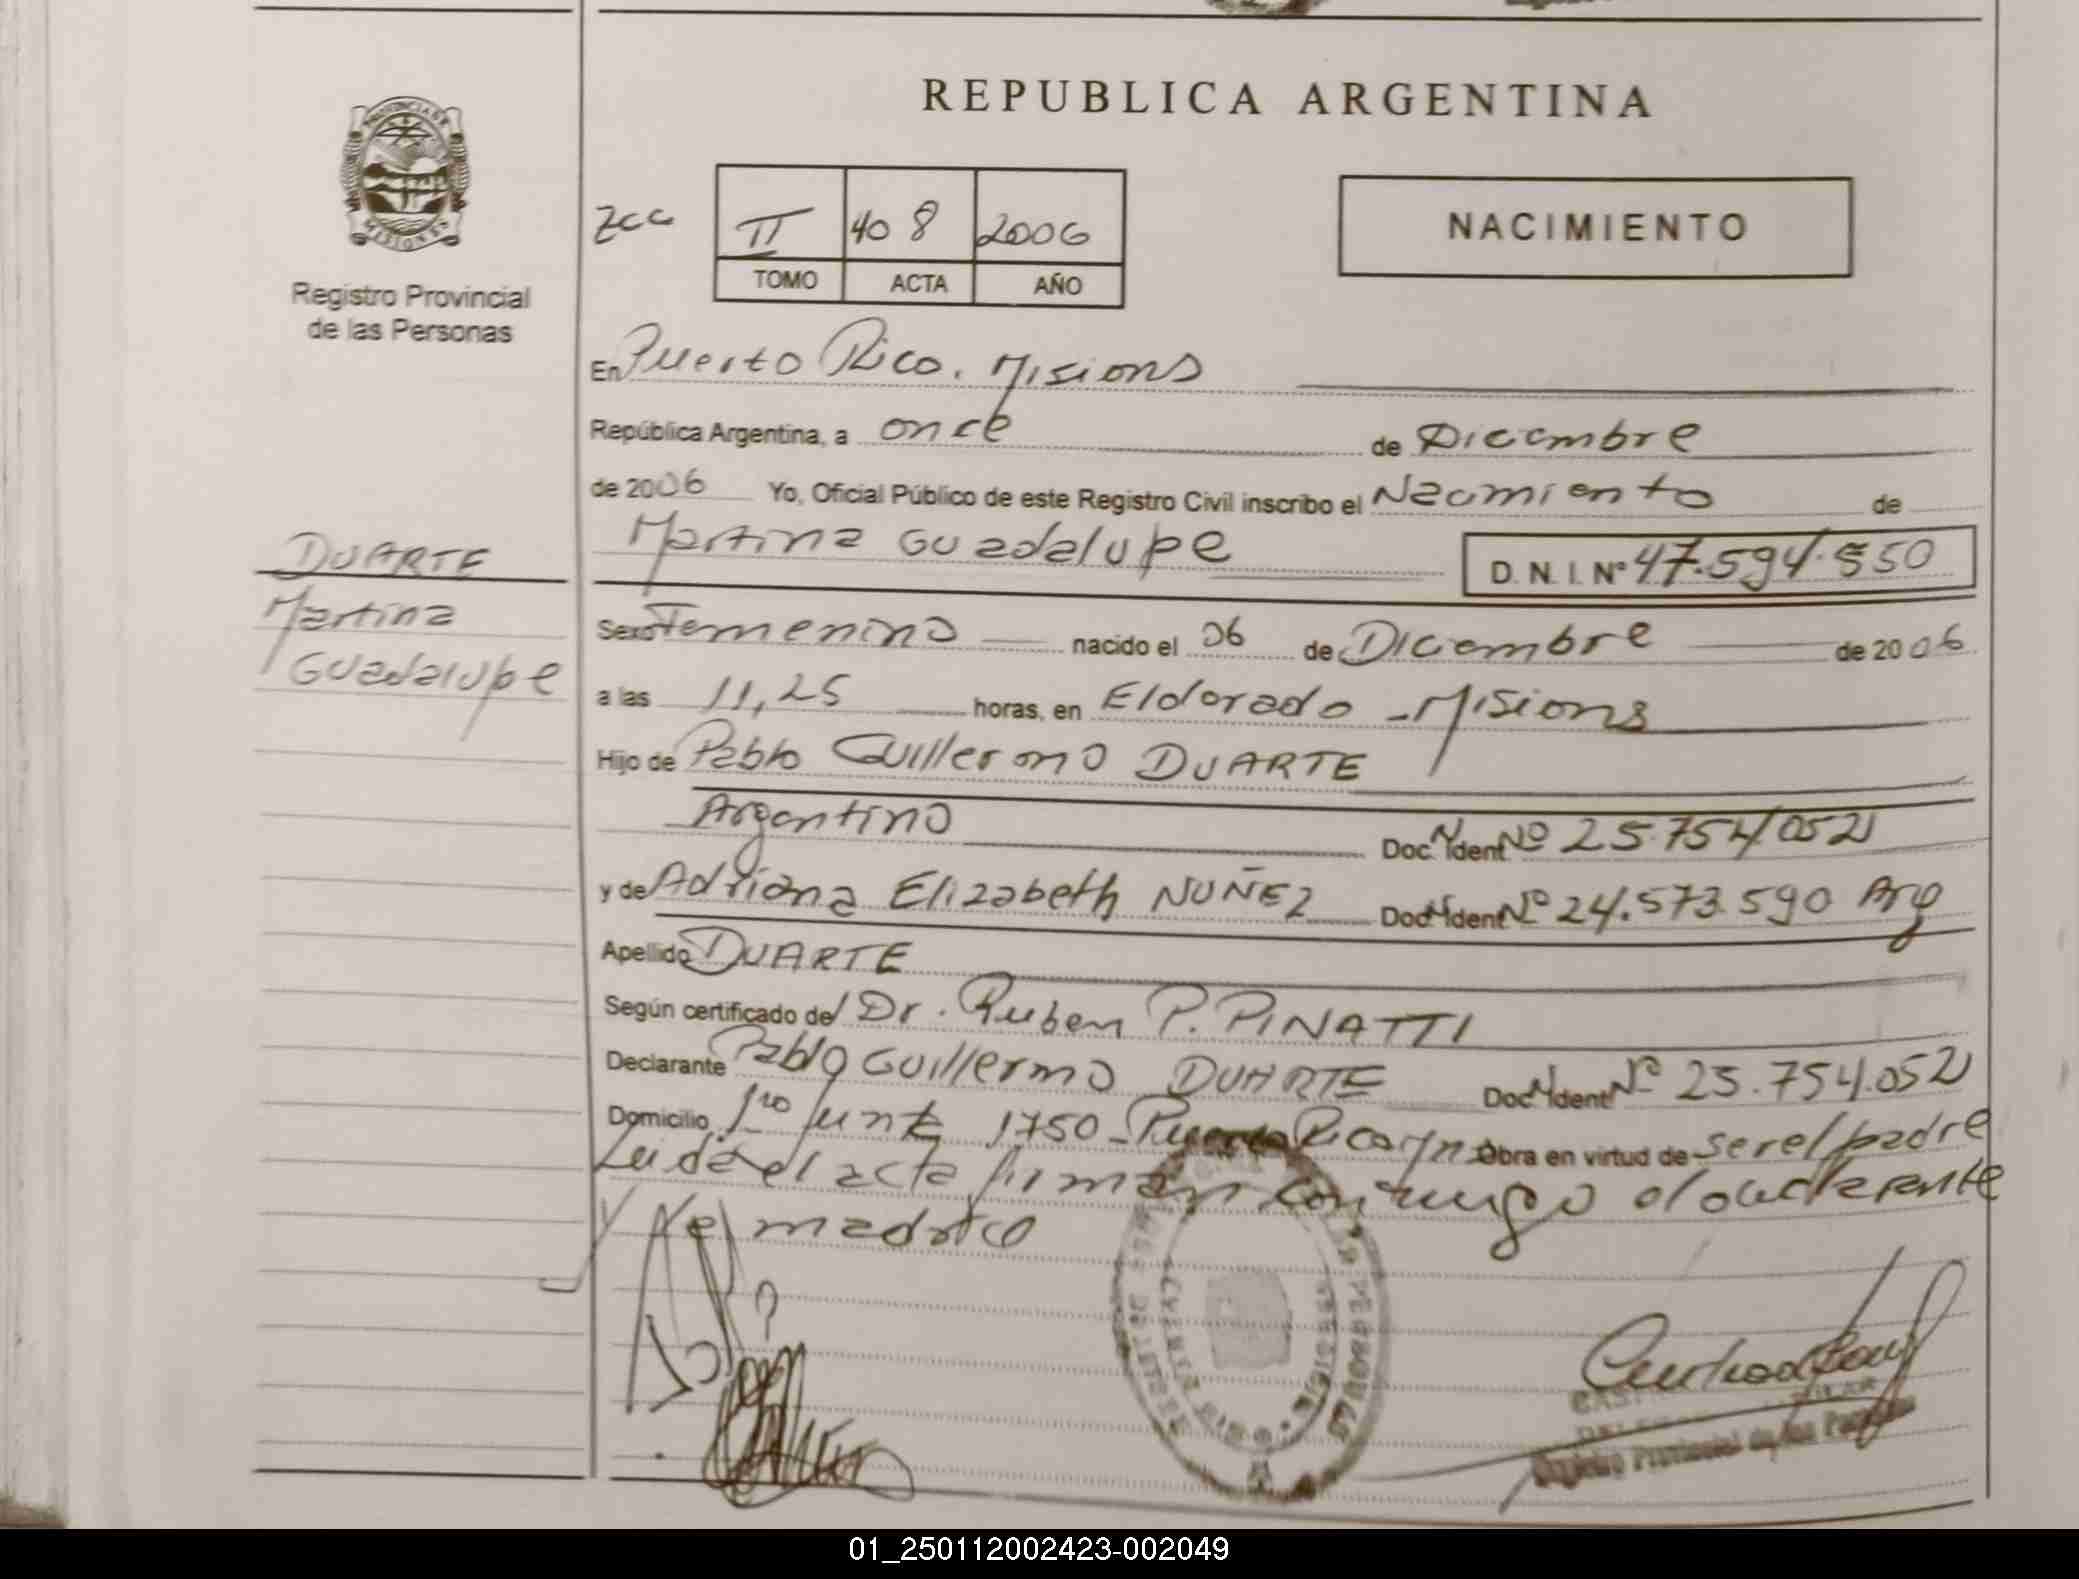 REPUBLICA ARGENTINA
PROVINCIA DE MISIONES
Registro Provincial
de las Personas
II 408 2006
TOMO ACTA AÑO
NACIMIENTO
En Puerto Rico. Misions
República Argentina, a once de Diciembre
de 2006 Yo, Oficial Público de este Registro Civil inscribo el Nacimiento de
Martina Guadalupe D. N. I. Nº 47.594.550
DUARTE
Martina
Guadalupe
Sexo Femenino nacido el 06 de Diciembre de 2006
a las 11,25 horas, en Eldorado - Misions
Hijo de Pablo Guillermo DUARTE
Argentino Doc. Ident Nº 25.754.052
y de Adriana Elizabeth NUÑEZ Doc. Ident Nº 24.573.590 Arg
Apellido DUARTE
Según certificado del Dr. Ruben P. PINATTI
Declarante Pablo Guillermo DUARTE Doc. Ident Nº 25.754.052
Domicilio 1ro Junta 1750 - Puerto Rico Mns Obra en virtud de ser el padre
Leida el acta firman conmigo el declarante
y la madre
Registro Provincial de las Personas
01_250112002423-002049